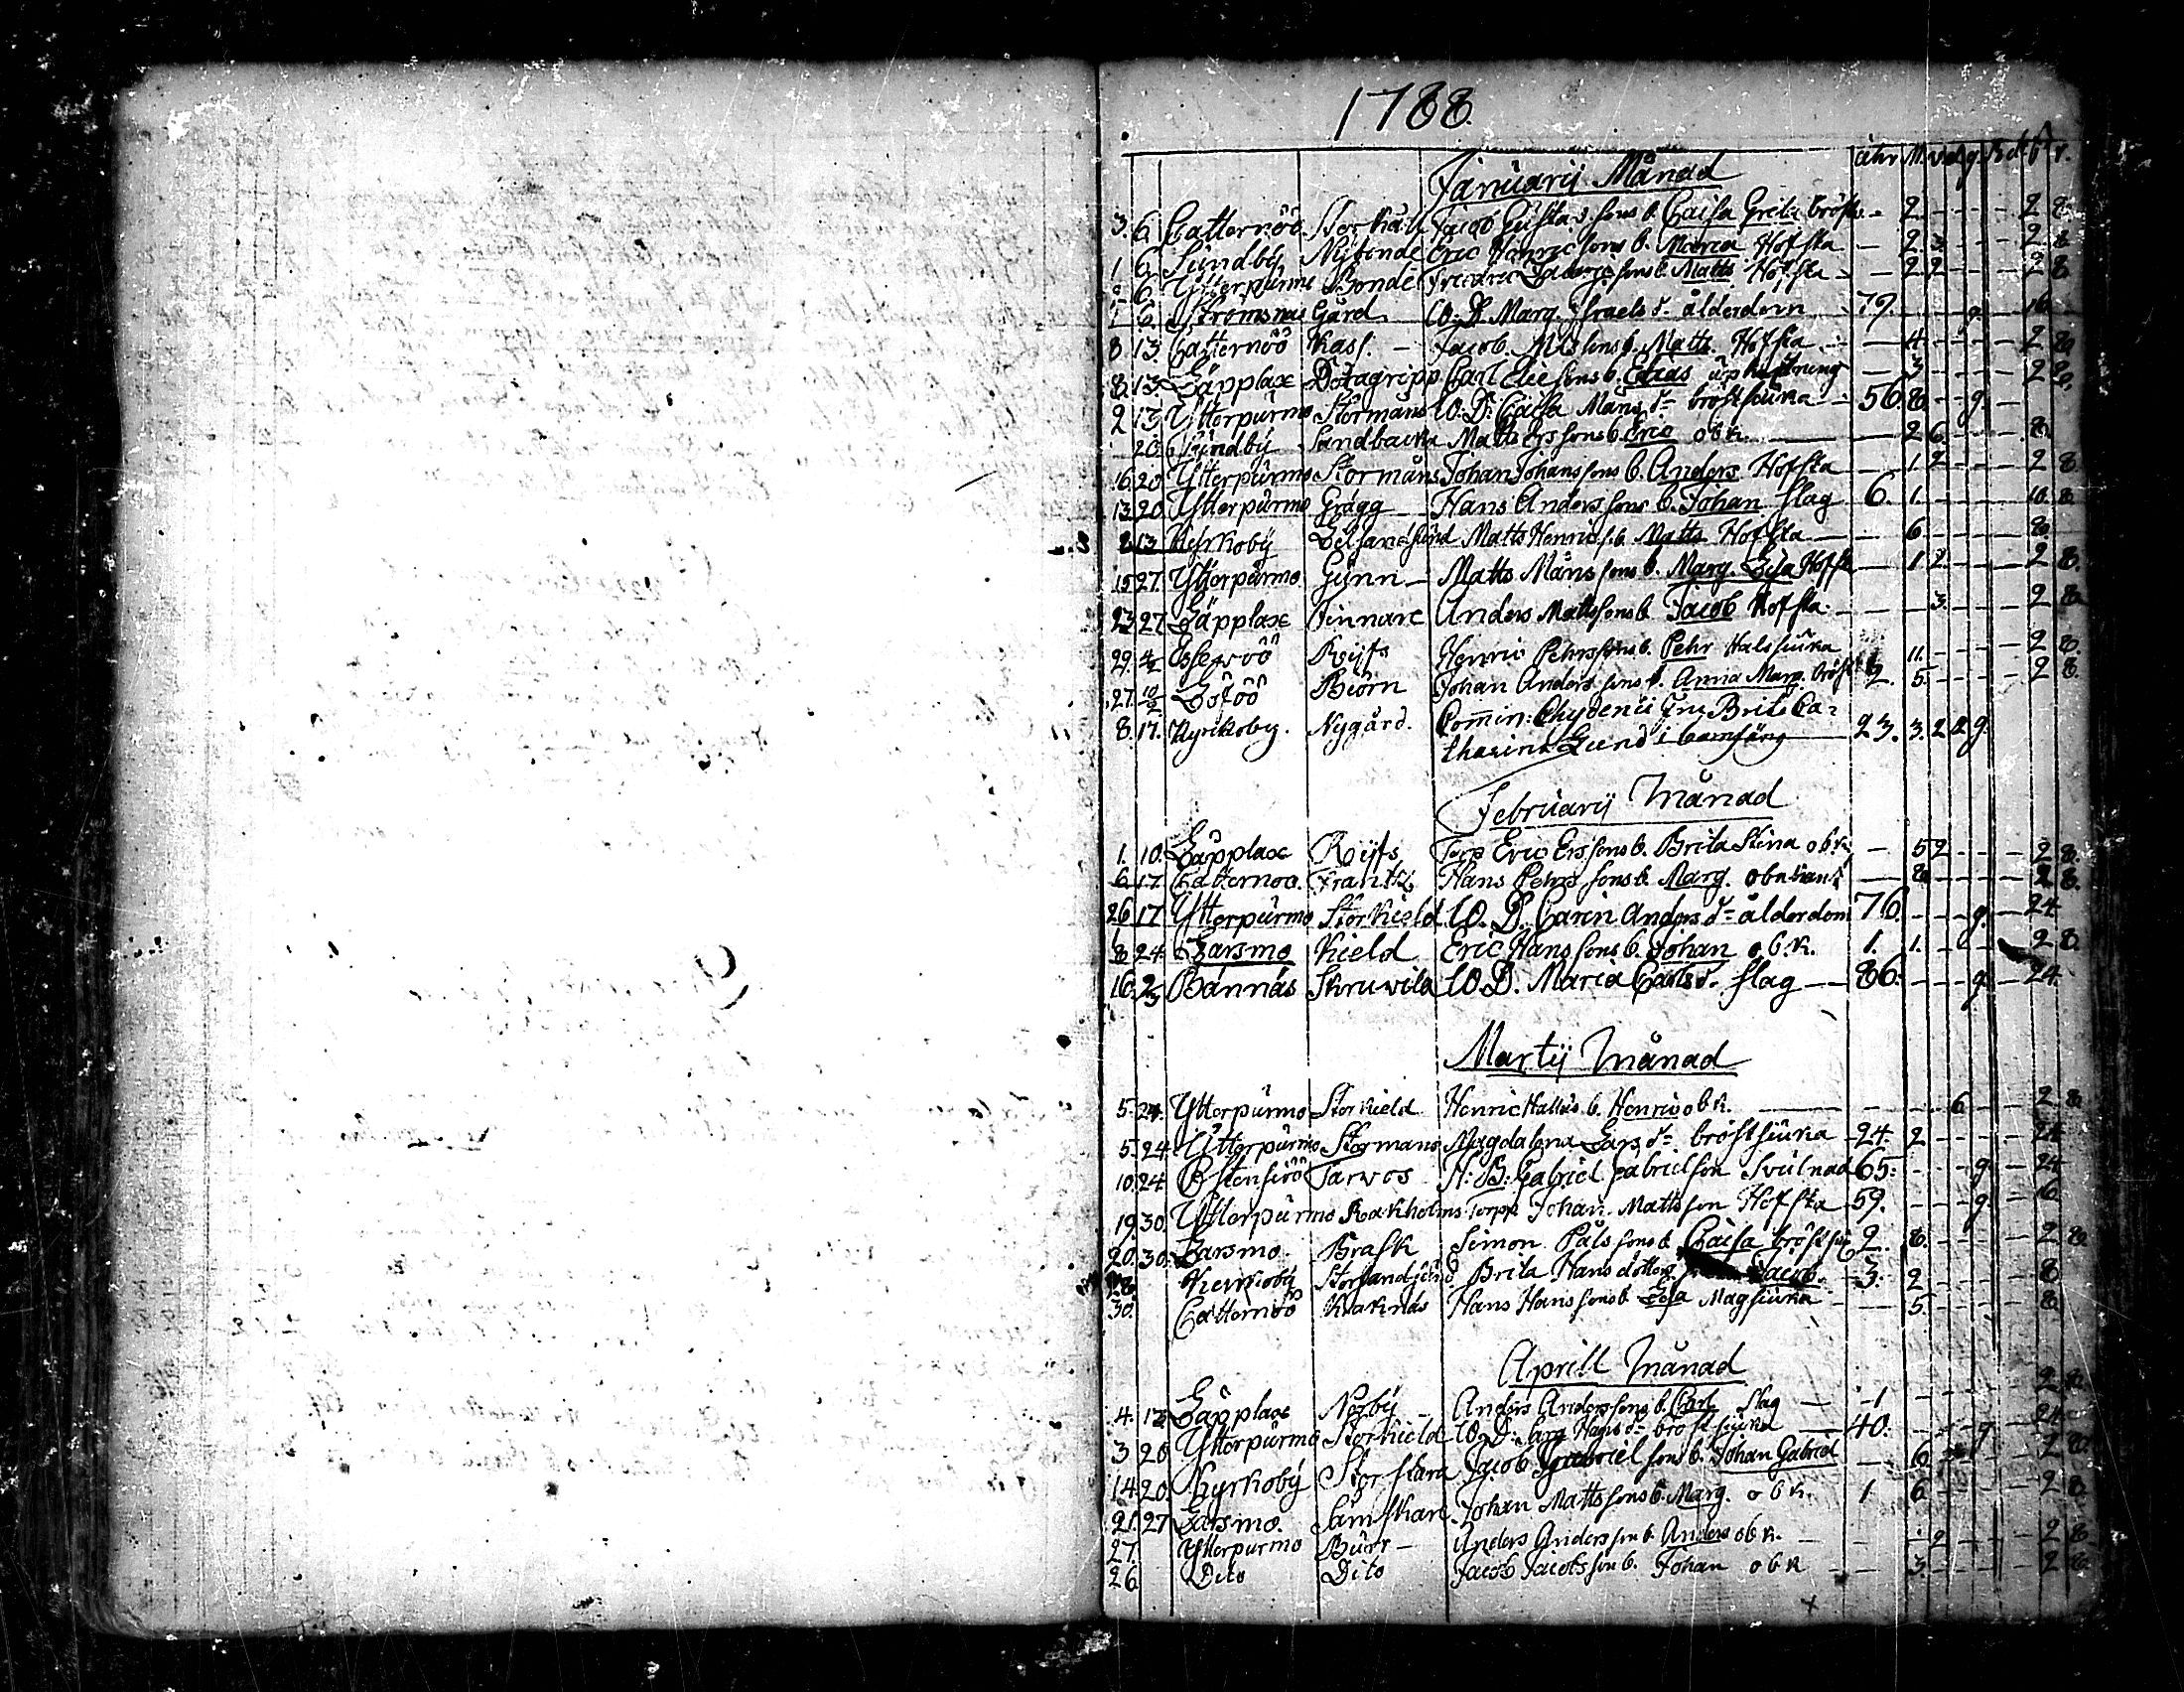 1788.
åhr M. v. d. g. B d. f r.
Januarij Månad
3. 6. Catternöö Storkåll Jacob Gustafs sons b. Caisa Greta bröstsi. - 2. - - - - 2 8.
1 6. Sundby Nybonde Eric Hansesons b. Maria Hofsta — 2. 3. - - - 2. 8
2 6. Ytterpurmo Bonde Fredric sons b. Matts Hofsta — 2 2 - - - 2 8
1 6. Strömsnäs Gård. W. D. Marg. Israels dr ålderdom 79. - - - g. - 16.
8 13. Catternöö Kass. Jacob Nilssons b. Matts Hofsta — 4 - - - - 2 8
8. 13. Läpplax Dötagripp Carl Ericsons b. upkastning — 3 - - - - 2 8.
2 13 Ytterpurmo Stormåns W. D: Caisa Måns dr bröstsiuka 56. 8. - - g. —
20. 6 Sundby Sandbacka Matts Erssons b. Eric obk. — 2 6 - - - 8.
16 20 Ytterpurmo Stormåns Johan Johanssons b. Anders Hofsta — 1 2 - - - 2 8.
13 20 Ytterpurmo Grägg Hans Anderssons b. Johan slag 6. 1. - - - - 16. 8.
8 13 Kyrkoby Matts Henrics. b. Matts Hofsta — 6 - - - - 8.
15 27. Ytterpurmo. Gunn — Matts Månssons b. Marg. Lisa Hofsta — 1 2. - - - 2 8.
23 27 Läpplax Finnare Anders Mattssons b. Jacob Hofsta. — 3. - - - 2 8.
29. 4/2 Rijfs Henric Pehrssons b. Pehr Halssiuka 11. - - - - 2 8.
27. 10/2 Löföö Biörn Johan Anderssons b. Anna Marg. bröstsi 2. 5. - - - - 2 8.
8. 17. Kyrkoby. Nygård. Commin: Chydenii Fru Brita Ca-
tharina Lund i barnsäng 23. 3. 2 2 g.
Februarij Månad
1. 10. Läpplax Rijfs Torp Eric Erssons b. Brita Stina obk. — 5 2 - - - 2. 8.
6 17 Catternöö. Frantz Hans Pehrssons b. Marg. obekant — 8 - - - - 2 8.
26 17 Ytterpurmo Storkield W. D. Carin Anders dr ålderdom 76. - - - g. - 24.
8 24 Larsmo Kield Eric Hanssons b. Johan obk. 1. 1. - - - - 2 8.
16. 2/3 Bännäs Skruvila W. D. Maria Carls dr. slag — 86. - - - g. - 24.
Martij Månad
5. 24. Ytterpurmo Storkield Henric Halls b. Henric obk. — - - - 6 - - 2 8
5. 24. Ytterpurmo Stormans Magdalena Lars dr bröstsiuka 24. 2 - - - - 24
10. 24 Tarwos N: B: Gabriel Gabrielson Svulnad 65. - - - g. - 24
19. 30. Ytterpurmo Rakholms Torpp Johan Mattsson Hofsta 59. - - - g. - 16
20. 30. Larsmo. Brask Simon Pålssons b. Caisa bröstsi 2. 8. - - - - 2 8
8. Kyrkoby Brita Hans dotters Jacob. 3. 2 - - - - 8
30. Catternöö Kråknäs Hans Hanssons b. Lisa Magsiuka — 5. - - - - 8
Aprill Månad
4. 13 Läpplax Norby Anders Anderssons b. Carl slag — 1 - - - - - 2 8
3 20 Ytterpurmo Storkield W. D. Hans dr bröstsiuka 40. - - - g. 24
14. 20. Kyrkoby Storstara Jacob Gabrielsons b. Johan Gabriel — 6 - - - - 2 8
21. 27 Larsmo. Sämskar. Johan Mattssons b. Marg. obk. 1 6. - - - - 2 8
27. Ytterpurmo Burr — Anders Andersson b. Anders obk. — - 2 - - - 2 8
26 Dito Dito Jacob Jacobsson b. Johan obk — 3. - - - - 2 8